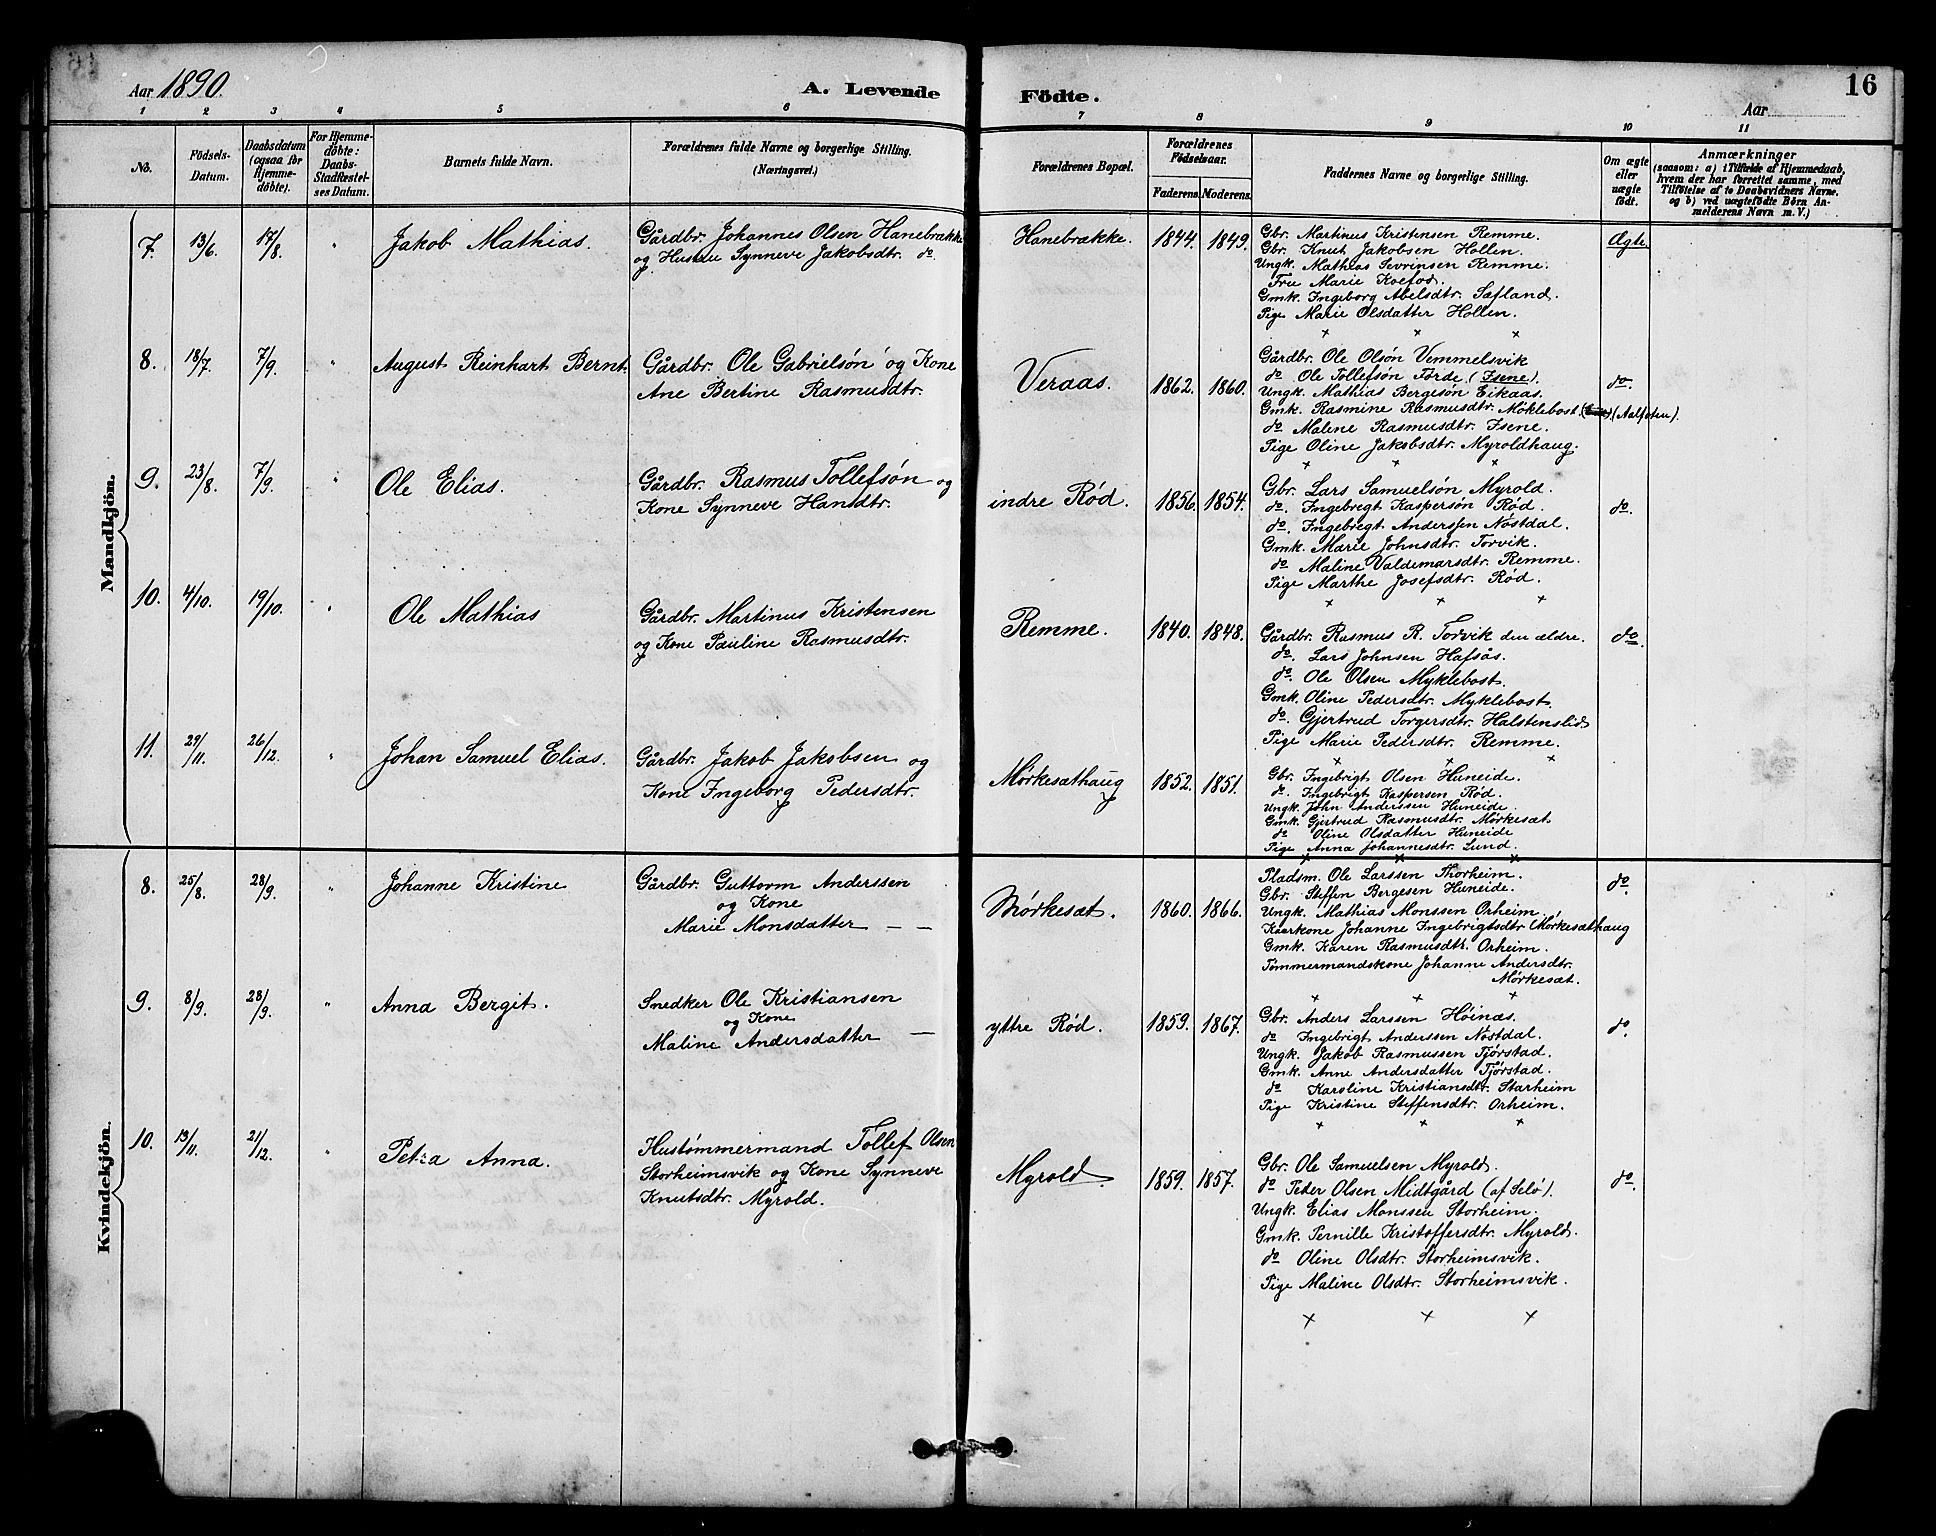 Aar 1890.
A. Levende
Födte.
Aar
16
1 2 3 4 5 6 7 8 9 10 11
No.
Födsels-
Datum.
Daabsdatum
(ogsaa for
Hjemme-
döbte).
For Hjemme-
döbte:
Daabs-
Stadfæstel-
ses Datum.
Barnets fulde Navn.
Forældrenes fulde Navne og borgerlige Stilling.
(Næringsvei.)
Forældrenes Bopæl.
Forældrenes
Födselsaar.
Faderens. Moderens.
Faddernes Navne og borgerlige Stilling.
Om ægte
eller
uægte
födt.
Anmærkninger
(saasom: a) i Tilfælde af Hjemmedaab,
hvem der har forrettet samme, med
Tilföielse af to Daabsvidners Navne.
og b) ved uægtefödte Börn An-
melderens Navn m. V.)
Mandkjön.
7. 13/6. 17/8. " Jakob Mathias.
Gårdbr. Johannes Olsen Hanebrække
og Hustru Synneve Jakobsdtr. do.
Hanebrække. 1844. 1849.
Gbr. Martinus Kristensen Remme.
Gbr. Knut Jakobsen Hollen.
Ungk. Mathias Sevrinsen Remme.
Fru Marie Koefod.
Gmk. Ingeborg Abelsdtr. Sætland.
Pige Marie Olsdatter Hollen.
Ægte
x x x
8. 18/7. 7/9. " August Reinhart Bernt.
Gårdbr. Ole Gabrielsön og Kone
Ane Bertine Rasmusdtr.
Veraas. 1862. 1860.
Gårdbr. Ole Olsön Vemmelsvik
do Ole Tollefsön Förde. (Isene).
Ungk. Mathias Bergesön Eikaas.
Gmk. Rasmine Rasmusdtr. Möklebost. (Aalfoten).
do Maline Rasmusdtr. Isene.
Pige Oline Jakobsdtr. Myroldhaug.
do.
x x x
9. 23/8. 7/9. " Ole Elias.
Gårdbr. Rasmus Tollefsön og
Kone Synneve Hansdtr.
indre Rød. 1856. 1854.
Gbr. Lars Samuelsön Myrold.
do. Ingebregt Kaspersön Rød.
do. Ingebregt Anderssen Nöstdal.
Gmk. Marie Johnsdtr. Torvik.
do Maline Valdemarsdtr. Remme.
Pige Marthe Josefsdtr. Rød.
do.
x x x
10. 4/10. 19/10. " Ole Mathias
Gårdbr. Martinus Kristensen
og Kone Pauline Rasmusdtr.
Remme. 1840. 1848.
Gårdbr. Rasmus R. Torvik den ældre.
do. Lars Johnsen Hafsås.
do. Ole Olsen Myklebost.
Gmk. Oline Pedersdtr. Myklebost.
do. Gjertrud Torgersdtr. Halstenslid
Pige Marie Pedersdtr. Remme.
do.
x x x
11. 29/11. 26/12. " Johan Samuel Elias.
Gårdbr. Jakob Jakobsen og
Kone Ingeborg Pedersdtr.
Mørkesæthaug 1852. 1851.
Gbr. Ingebrigt Olsen Huneide.
do. Ingebrigt Kaspersen Rød.
Ungk. John Anderssen Huneide.
Gmk. Gjertrud Rasmusdtr. Mørkesæt
do Oline Olsdatter Huneide
Pige Anna Johannesdtr. Lund.
x x x
Kvindekjön.
8. 25/8. 28/9. " Johanne Kristine
Gårdbr. Guttorm Anderssen
og Kone
Marie Monsdatter — —
Mørkesæt. 1860. 1866.
Pladsm. Ole Larssen Thorheim.
Gbr. Steffen Bergesen Huneide.
Ungk. Mathias Monssen Orheim.
Kaarkone Johanne Ingebrigtsdtr Mørkesæthaug
Gmk. Karen Rasmusdtr. Orheim.
Tømmermandskone Johanne Andersdtr.
Mørkesæt.
do.
x x x
9. 8/9. 28/9. " Anna Bergit.
Snedker Ole Kristiansen
og Kone
Maline Andersdatter —
yttre Rød. 1859. 1867.
Gbr. Anders Larssen Höinæs.
do Ingebrigt Anderssen Nøstdal.
Ungk. Jakob Rasmussen Fjørstad.
Gmk. Anne Andersdatter Fjørstad.
do Karoline Kristiansdtr. Starheim
Pige Kristine Steffensdtr. Orheim.
do.
x x x
10. 13/11. 21/12. " Petra Anna.
Hustømmermand Tollef Olsen
Storheimsvik og Kone Synneve
Knutsdtr. Myrold.
Myrold 1859. 1857.
Gbr. Ole Samuelsen Myrold.
do Peter Olsen Midtgård (af Selö).
Ungk. Elias Monssen Storheim.
Gmk. Pernille Kristoffersdtr. Myrold.
do Oline Olsdtr. Storheimsvik.
Pige Maline Olsdtr. Storheimsvik.
do.
x x x